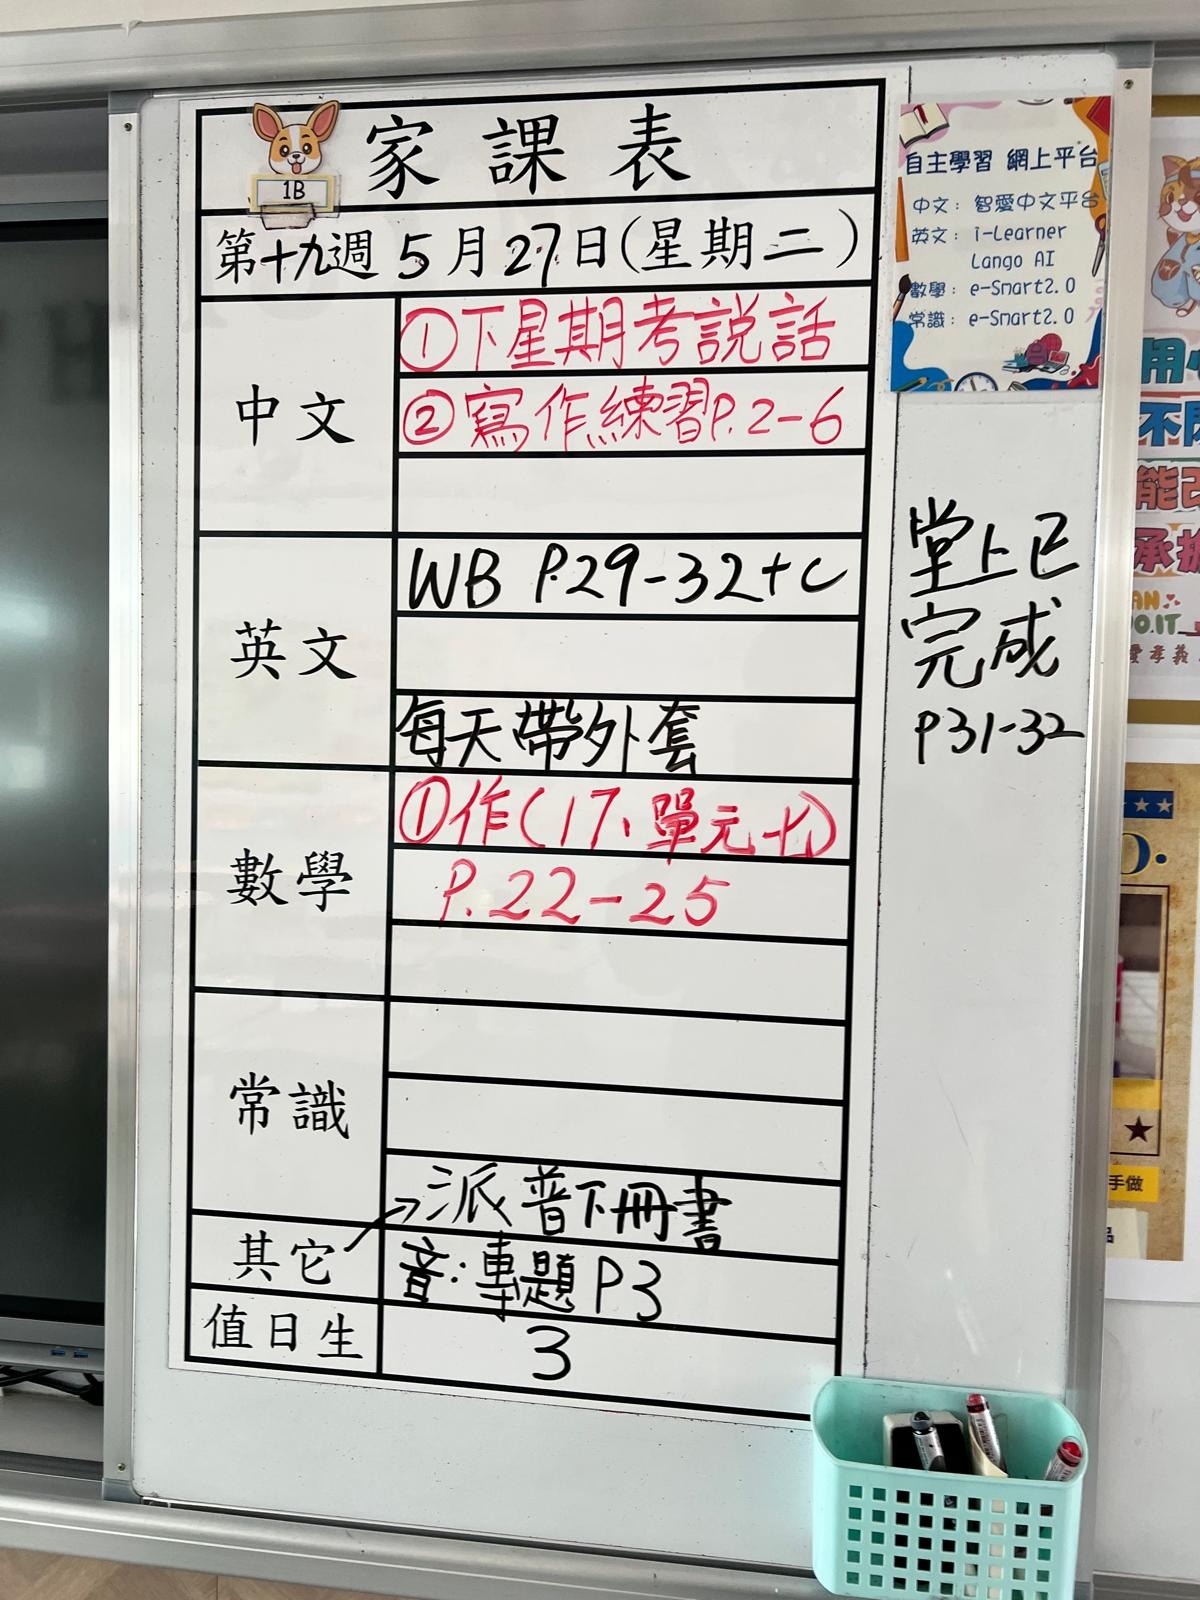 家課表
1B
第十九週 5月27日(星期二)
中文
①下星期考說話
②寫作練習P.2-6
英文
WB P.29-32+C
每天帶外套
數學
①作(17、單元十)
P.22-25
常識
派普下冊書
其它
音:專題 P3
值日生
3
自主學習 網上平台
中文: 智愛中文平台
英文: i-Learner
Lango AI
數學: e-Smart2.0
常識: e-Smart2.0
堂上已
完成
P31-32
不
能改
手做